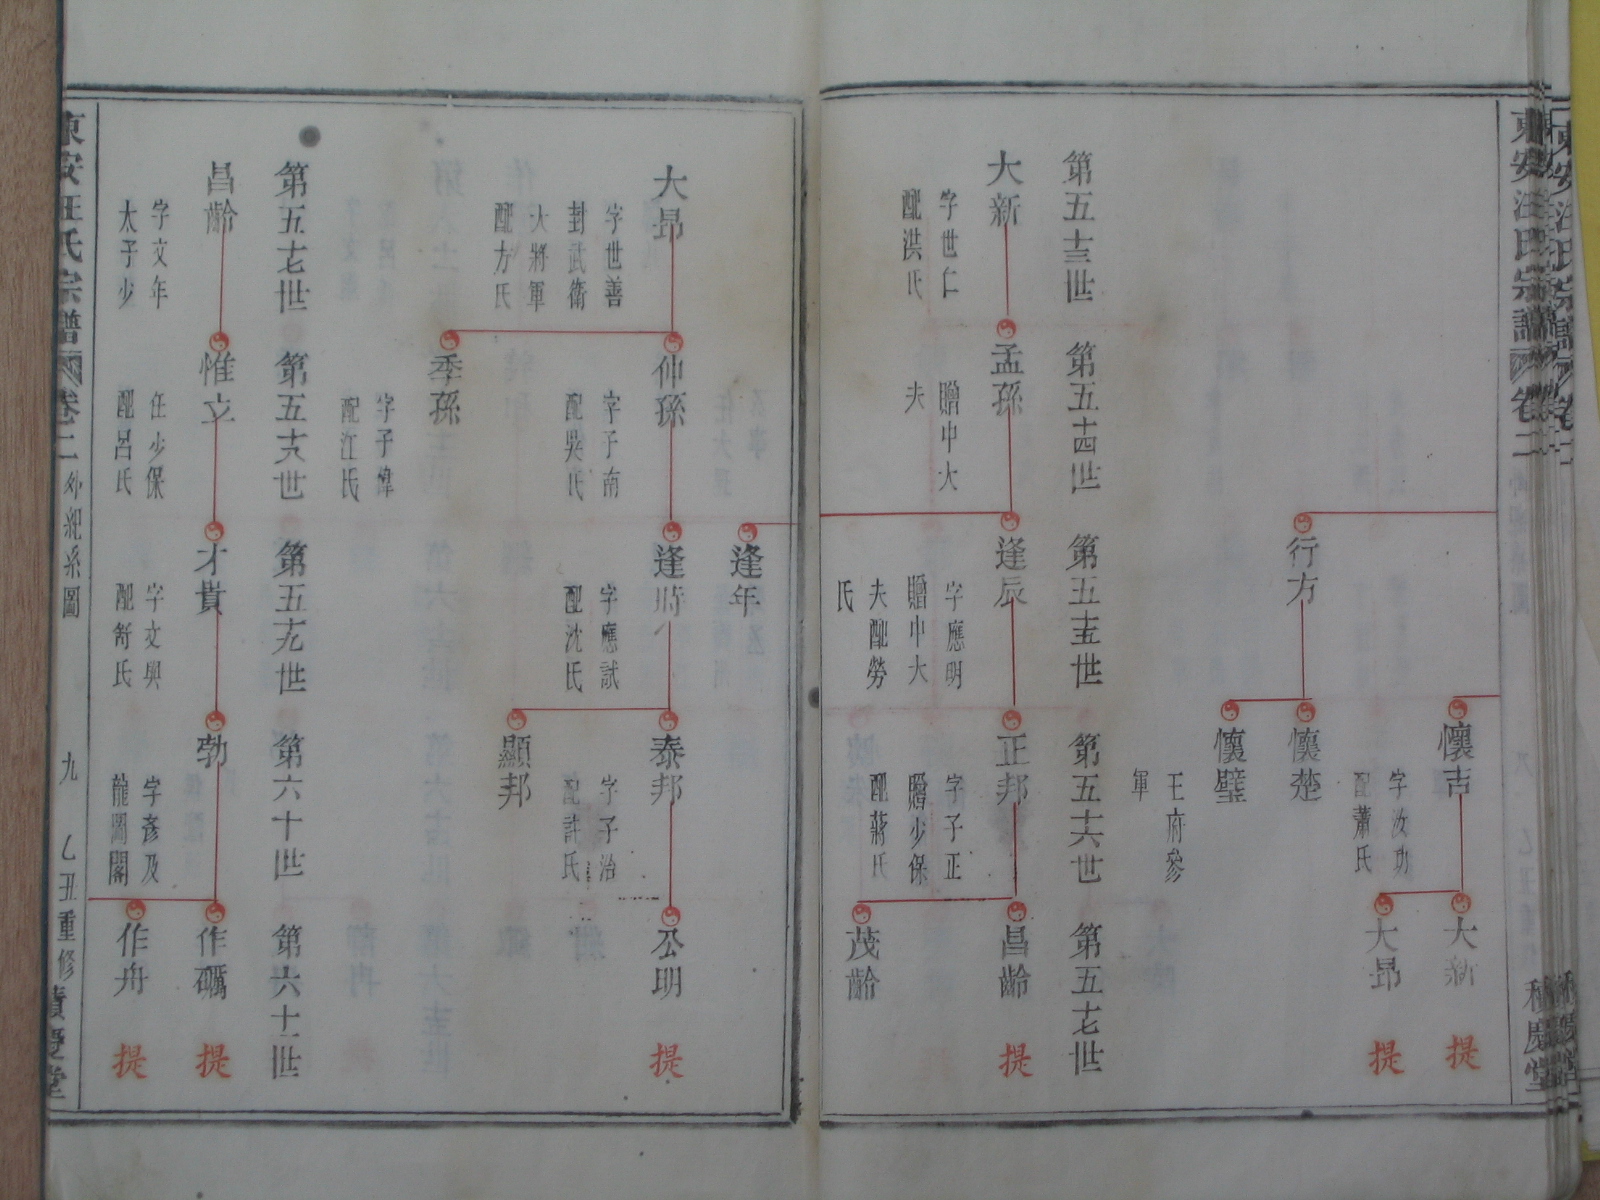 東安汪氏宗譜 卷二
積慶堂
懷吉
字汝功
配蕭氏
大新 提
大昂 提
行方
懷楚
懷璧
王府參
軍
第五十三世 第五十四世 第五十五世 第五十六世 第五十七世
大新
字世仁
配洪氏
孟孫
贈中大
夫
逢辰
字應明
贈中大
夫配勞
氏
正邦
字子正
贈少保
配蔣氏
昌齡 提
茂齡
逢年
大昂
字世善
封武衛
大將軍
配方氏
仲孫
字子南
配吳氏
逢時
字應試
配沈氏
泰邦
字子治
配許氏
公明 提
顯邦
季孫
字子偉
配汪氏
第五十七世 第五十八世 第五十九世 第六十世 第六十一世
昌齡
字文年
太子少
惟立
任少保
配呂氏
才貴
字文興
配舒氏
勃
字彥及
龍圖閣
作礪 提
作舟 提
東安汪氏宗譜 卷二 外紀系圖 九 乙丑重修 積慶堂